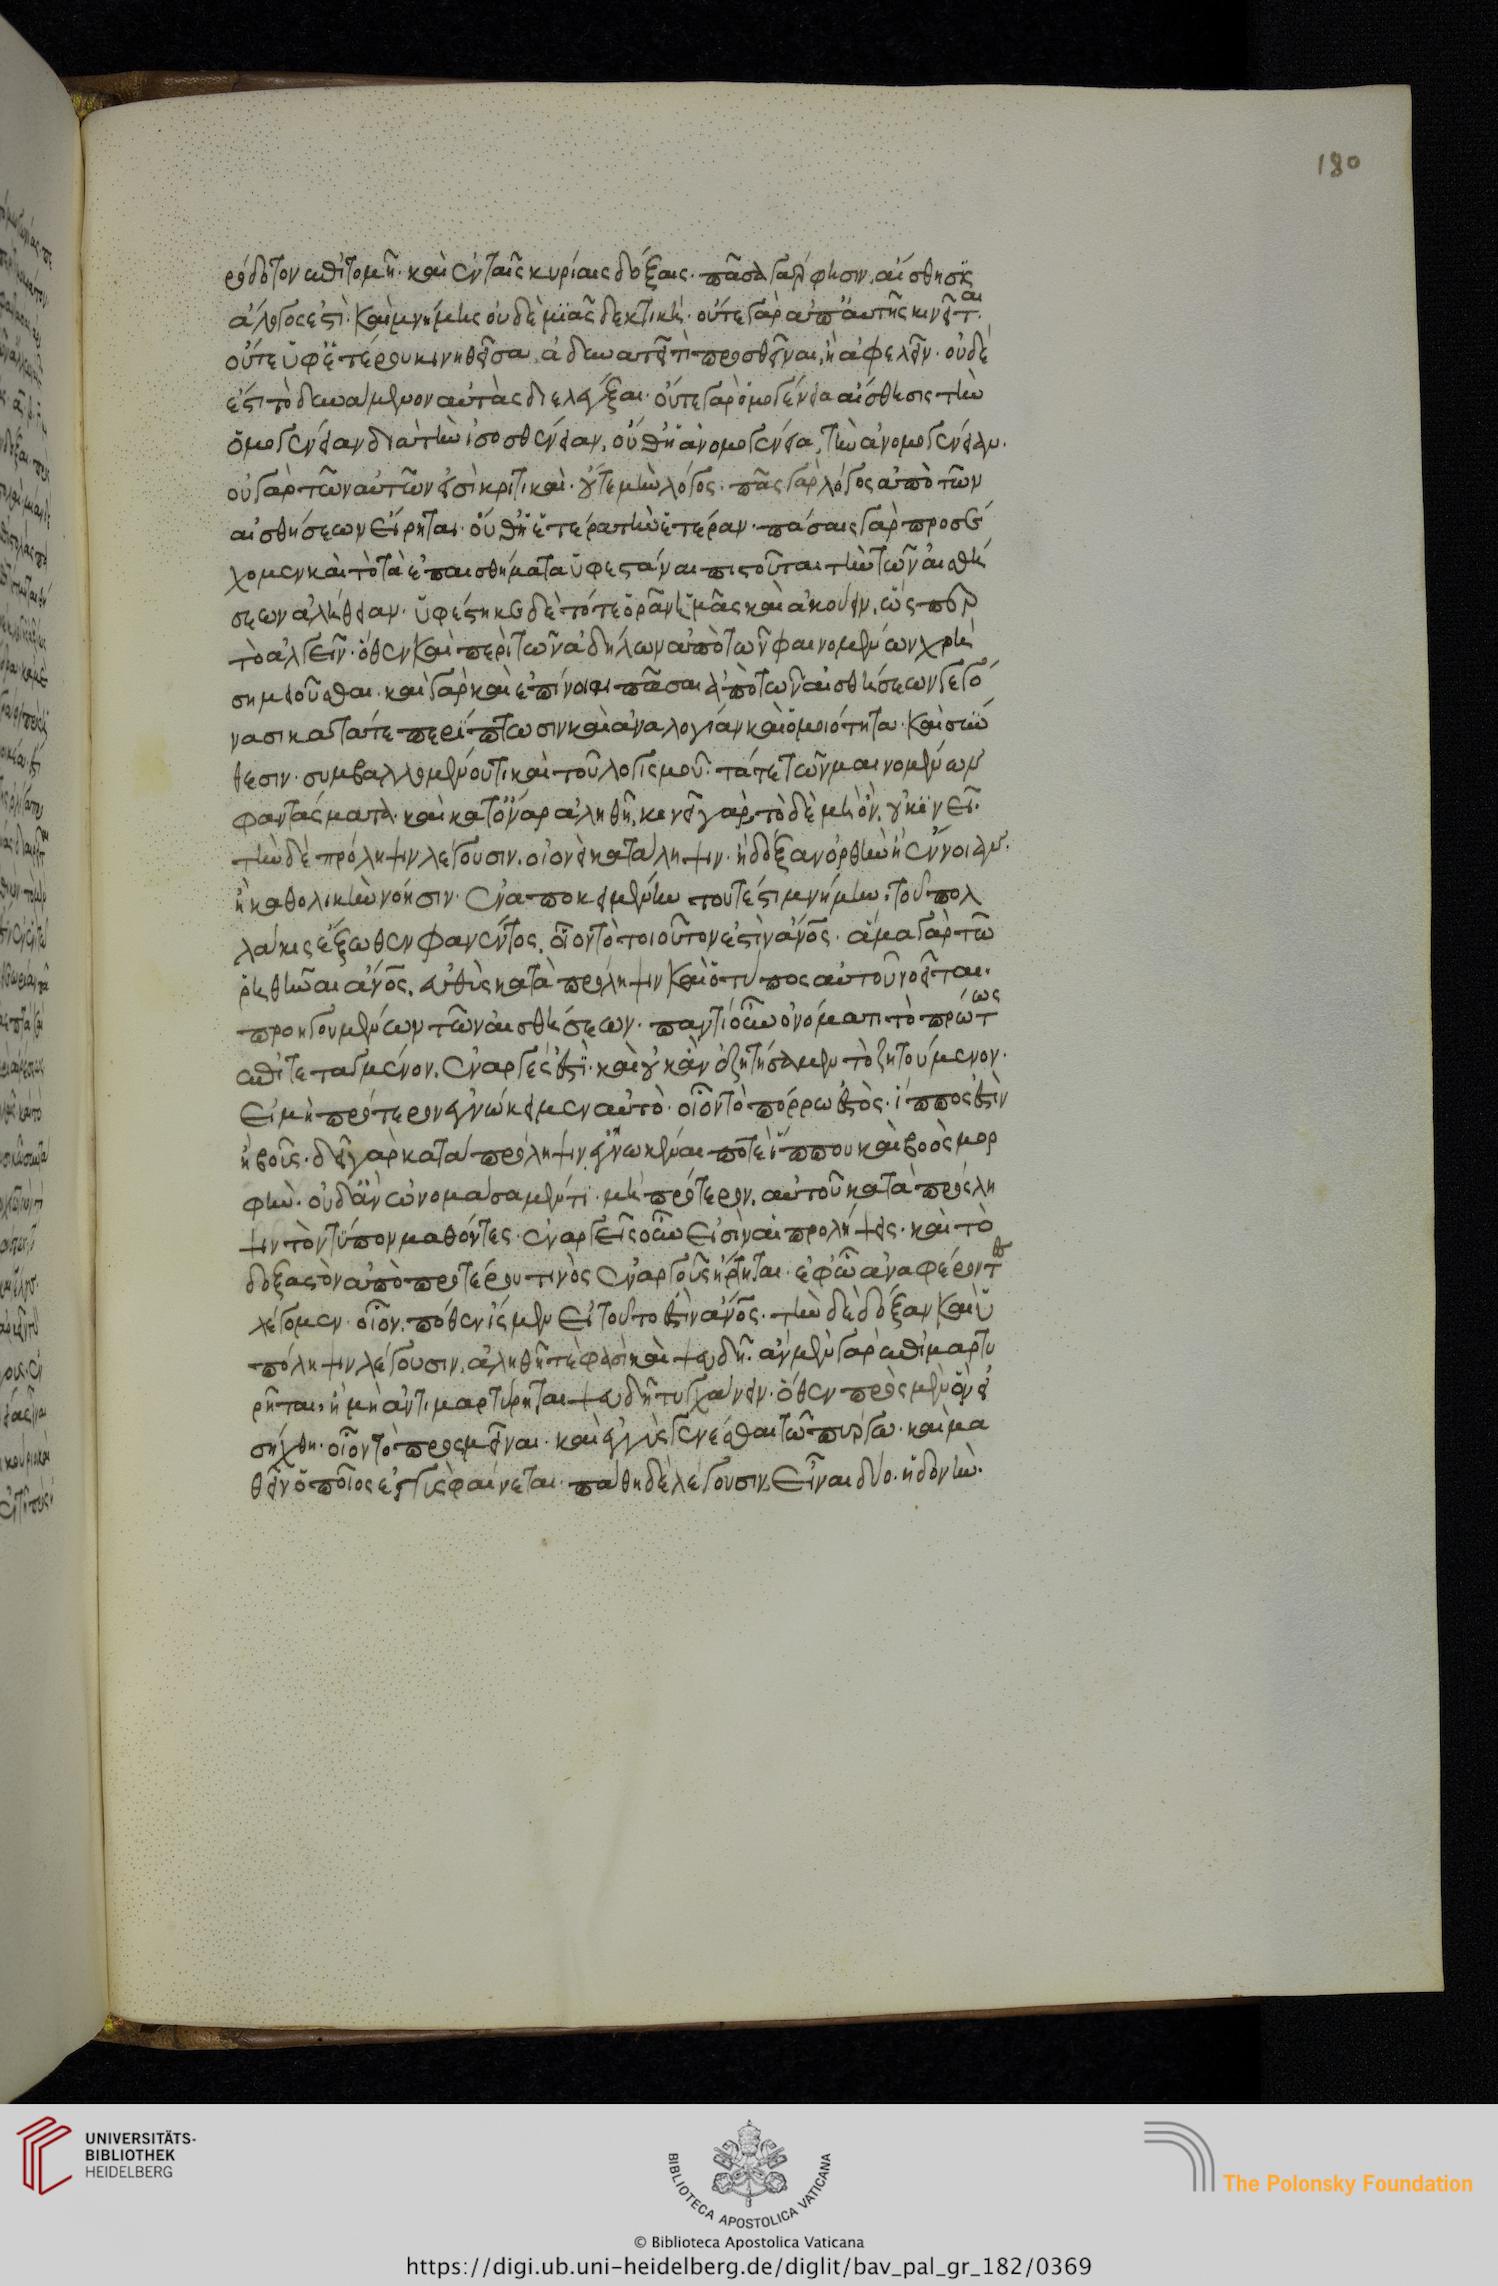 180
ρόδοτον ἐπιτομῆ· καὶ ἐν ταῖς κυρίαις δόξαις· πᾶσα γάρ φησιν, αἴσθησις
ἄλογος ἐστὶ· καὶ μνήμης οὐδὲ μιᾶς δεκτική· οὔτε γὰρ ἀπ' αὐτῆς κινεῖται·
οὔτε ὑφ' ἑτέρου κινηθεῖσα, ἀδυνατεῖ τὶ προσθεῖναι, ἢ ἀφελεῖν· οὐδὲ
ἔστι τὸ δυνάμενον αὐτὰς διελέγξαι· οὔτε γὰρ ὁμογένεια αἴσθησις τὴν
ὁμογένειαν διὰ τὴν ἰσοσθένειαν, οὔθ' ἡ ἀνομογένεια, τὴν ἀνομογένειαν·
οὐ γὰρ τῶν αὐτῶν εἰσὶ κριτικαὶ· οὔτε μὴν λόγος· πᾶς γὰρ λόγος ἀπὸ τῶν
αἰσθήσεων εἴρηται· οὔθ' ἡ ἑτέρα τὴν ἑτέραν· πάσαις γὰρ προσέ
χομεν καὶ τὸ τὰ ἐπαισθήματα ὑφεστάναι πιστοῦται τὴν τῶν αἰσθή
σεων ἀλήθειαν· ὑφέστηκε δὲ τό τε ὁρᾶν ἡμᾶς καὶ ἀκούειν, ὥσπερ
τὸ ἀλγεῖν· ὅθεν καὶ περὶ τῶν ἀδήλων ἀπὸ τῶν φαινομένων χρὴ
σημειοῦσθαι· καὶ γὰρ καὶ ἐπίνοιαι πᾶσαι ἀπὸ τῶν αἰσθήσεων γεγό
νασι κατά τε περίπτωσιν καὶ ἀναλογίαν καὶ ὁμοιότητα· καὶ σύν
θεσιν· συμβαλλομένου τι καὶ τοῦ λογισμοῦ· τά τε τῶν μαινομένων
φαντάσματα· καὶ κατ' ὄναρ ἀληθῆ, κινεῖ γάρ, τὸ δὲ μὴ ὂν, οὐ κινεῖ·
τὴν δὲ πρόληψιν λέγουσιν, οἱονεὶ κατάληψιν· ἢ δόξαν ὀρθὴν ἢ ἔννοιαν·
ἢ καθολικὴν νόησιν· ἐναποκειμένην τουτέστι μνήμην, τοῦ πολ
λάκις ἔξωθεν φανέντος, οἷον τὸ τοιοῦτον ἐστὶν ἄνος· ἅμα γὰρ τῶ
ῥηθῆναι ἄνος, εὐθὺς κατὰ πρόληψιν καὶ ὁ τύπος αὐτοῦ νοεῖται·
προηγουμένων τῶν αἰσθήσεων· παντὶ οὖν ὀνόματι τὸ πρώτως
ἐπιτεταγμένον, ἐναργές ἐστι· καὶ οὐκ ἂν ἐζητήσαμεν τὸ ζητούμενον·
εἰ μὴ πρότερον ἐγνώκειμεν αὐτὸ· οἷον τὸ πόρρω ἐστὸς· ἵππος ἐστὶν
ἢ βοῦς· δεῖ γὰρ κατὰ πρόληψιν ἐγνωκέναι ποτὲ ἵππου καὶ βοὸς μορ
φὴν· οὐδ' ἂν ὠνομάσαμέν τι· μὴ πρότερον, αὐτοῦ κατὰ πρόλη
ψιν τὸν τύπον μαθόντες· ἐναργεῖς οὖν εἰσὶν αἱ προλήψεις· καὶ τὸ
δοξαστὸν ἀπὸ προτέρου τινὸς ἐναργοῦς ἤρτηται· ἐφ' ὃ ἀναφέροντες
λέγομεν· οἷον, πόθεν ἴσμεν εἰ τοῦτο ἐστὶν ἄνος· τὴν δὲ δόξαν καὶ ὑ
πόληψιν λέγουσιν, ἀληθῆ τέ φασι καὶ ψευδῆ· ἂν μὲν γὰρ ἐπιμαρτυ
ρῆται, ἢ μὴ ἀντιμαρτύρηται ψευδῆ τυγχάνειν· ὅθεν προσμένον εἰ
σήχθη· οἷον τὸ προσμεῖναι· καὶ ἐγγὺς γενέσθαι τῶ πύργω· καὶ μα
θεῖν ὁποῖος ἐγγὺς φαίνεται· πάθη δὲ λέγουσιν, εἶναι δύο· ἡδονὴν·
UNIVERSITÄTS-
BIBLIOTHEK
HEIDELBERG
BIBLIOTECA APOSTOLICA VATICANA
The Polonsky Foundation
© Biblioteca Apostolica Vaticana
https://digi.ub.uni-heidelberg.de/diglit/bav_pal_gr_182/0369